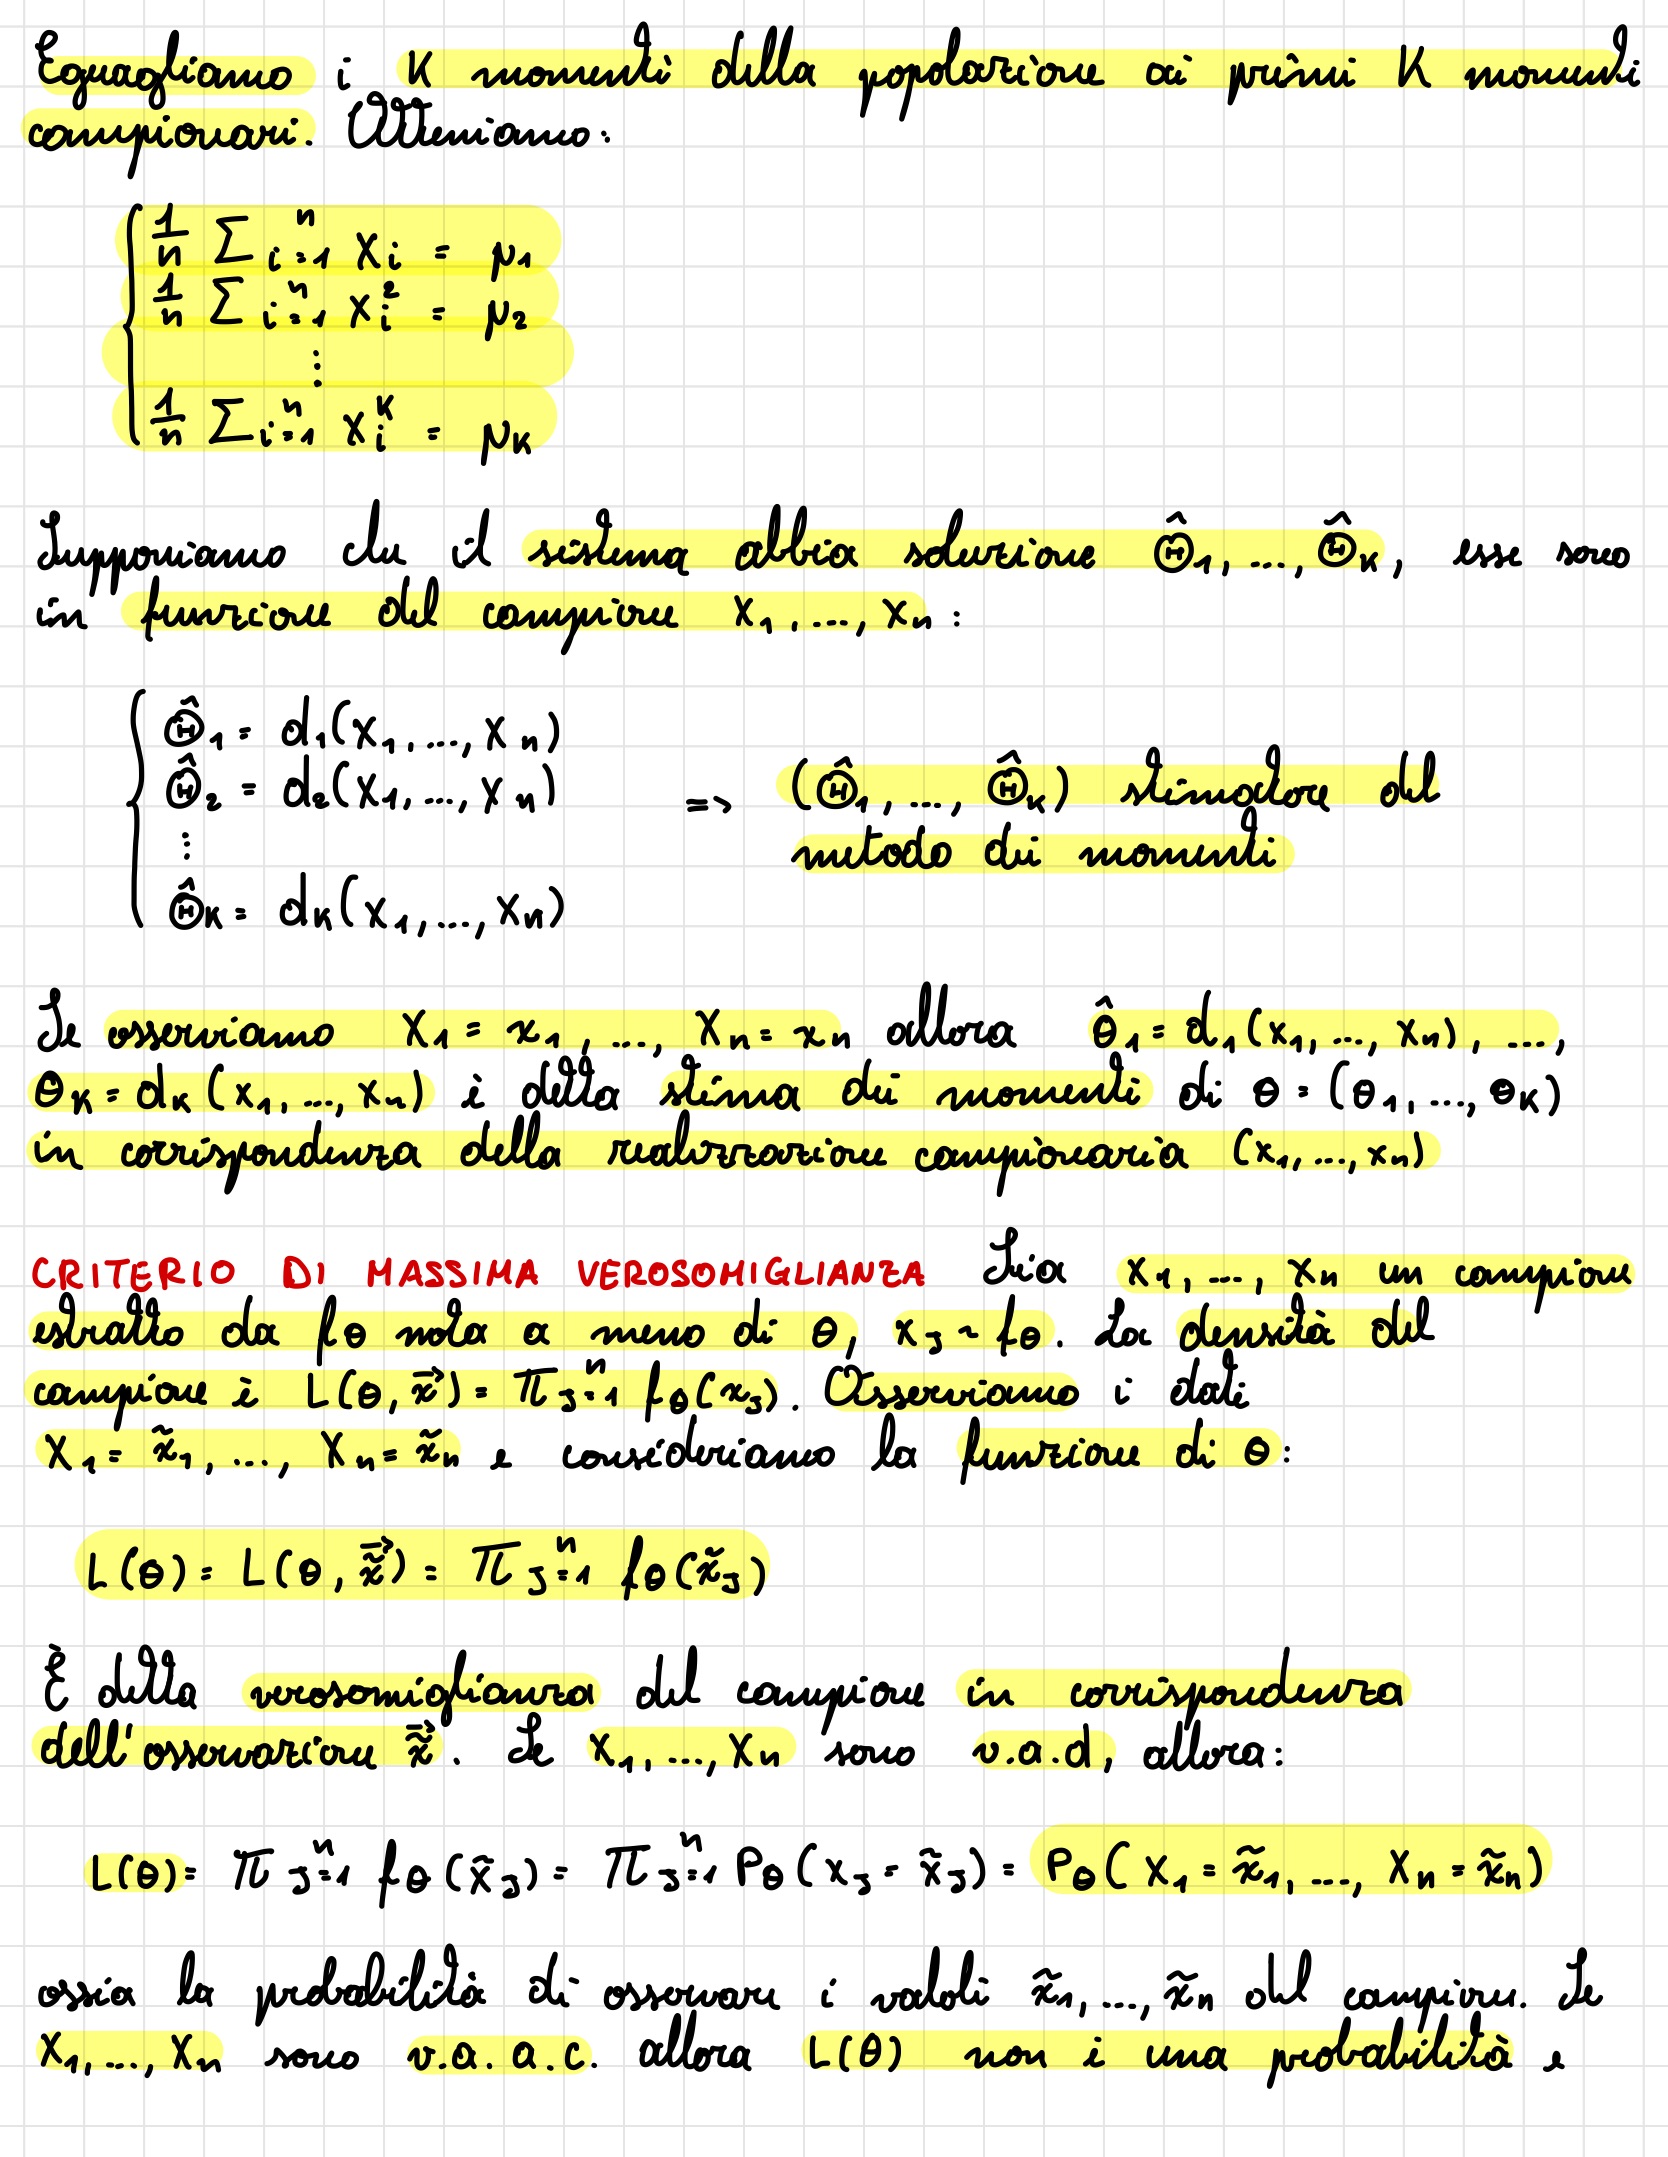 Eguagliamo i K momenti della popolazione ai primi K momenti
campionari. Otteniamo:
{ 1/n Σ_{i=1}^{n} X_i = μ_1
1/n Σ_{i=1}^{n} X_i^2 = μ_2
⋮
1/n Σ_{i=1}^{n} X_i^K = μ_K
Supponiamo che il sistema abbia soluzione Θ̂_1, ..., Θ̂_K, esse sono
in funzione del campione X_1, ..., X_n:
{ Θ̂_1 = d_1(X_1, ..., X_n)
Θ̂_2 = d_2(X_1, ..., X_n)
⋮
Θ̂_K = d_K(X_1, ..., X_n)
=> (Θ̂_1, ..., Θ̂_K) stimatore del
metodo dei momenti
Se osserviamo X_1 = x_1, ..., X_n = x_n allora θ̂_1 = d_1(x_1, ..., x_n), ...,
θ_K = d_K(x_1, ..., x_n) è detta stima dei momenti di θ = (θ_1, ..., θ_K)
in corrispondenza della realizzazione campionaria (x_1, ..., x_n)
CRITERIO DI MASSIMA VEROSOMIGLIANZA Sia X_1, ..., X_n un campione
estratto da f_θ nota a meno di θ, X_J ~ f_θ. La densità del
campione è L(θ, x⃗) = π_{J=1}^{n} f_θ(x_J). Osserviamo i dati
X_1 = x̃_1, ..., X_n = x̃_n e consideriamo la funzione di θ:
L(θ) = L(θ, x̃⃗) = π_{J=1}^{n} f_θ(x̃_J)
È detta verosomiglianza del campione in corrispondenza
dell'osservazione x̃⃗. Se X_1, ..., X_n sono v.a.d, allora:
L(θ) = π_{J=1}^{n} f_θ(x̃_J) = π_{J=1}^{n} P_θ(X_J = x̃_J) = P_θ(X_1 = x̃_1, ..., X_n = x̃_n)
ossia la probabilità di osservare i valoli x̃_1, ..., x̃_n del campione. Se
X_1, ..., X_n sono v.a.a.c. allora L(θ) non è una probabilità e